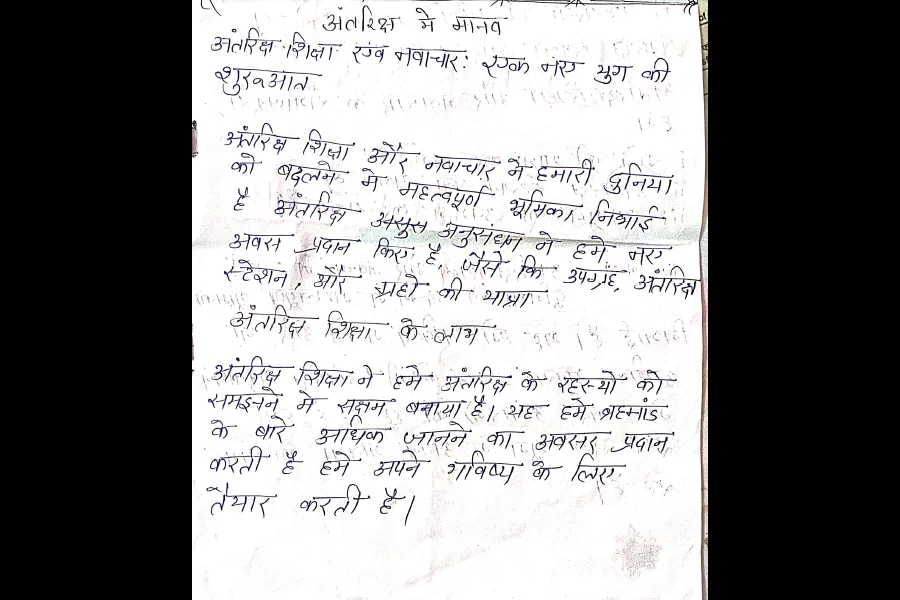 अंतरिक्ष मे मानव
अंतरिक्ष शिक्षा एंव नवाचार: एक नए युग की
शुरुआत
अंतरिक्ष शिक्षा और नवाचार ने हमारी दुनिया
को बदलने मे महत्वपूर्ण भूमिका निभाई
है अंतरिक्ष अनुसंधान ने हमे नए
अवस प्रदान किए है, जैसे कि उपग्रह, अंतरिक्ष
स्टेशन, और ग्रहो की यात्रा
अंतरिक्ष शिक्षा के लाभ
अंतरिक्ष शिक्षा ने हमे अंतरिक्ष के रहस्यो को
समझने मे सक्षम बनाया है। यह हमे ब्रहमांड
के बारे अधिक जानने का अवसर प्रदान
करती है हमे अपने भविष्य के लिए
तैयार करती है।